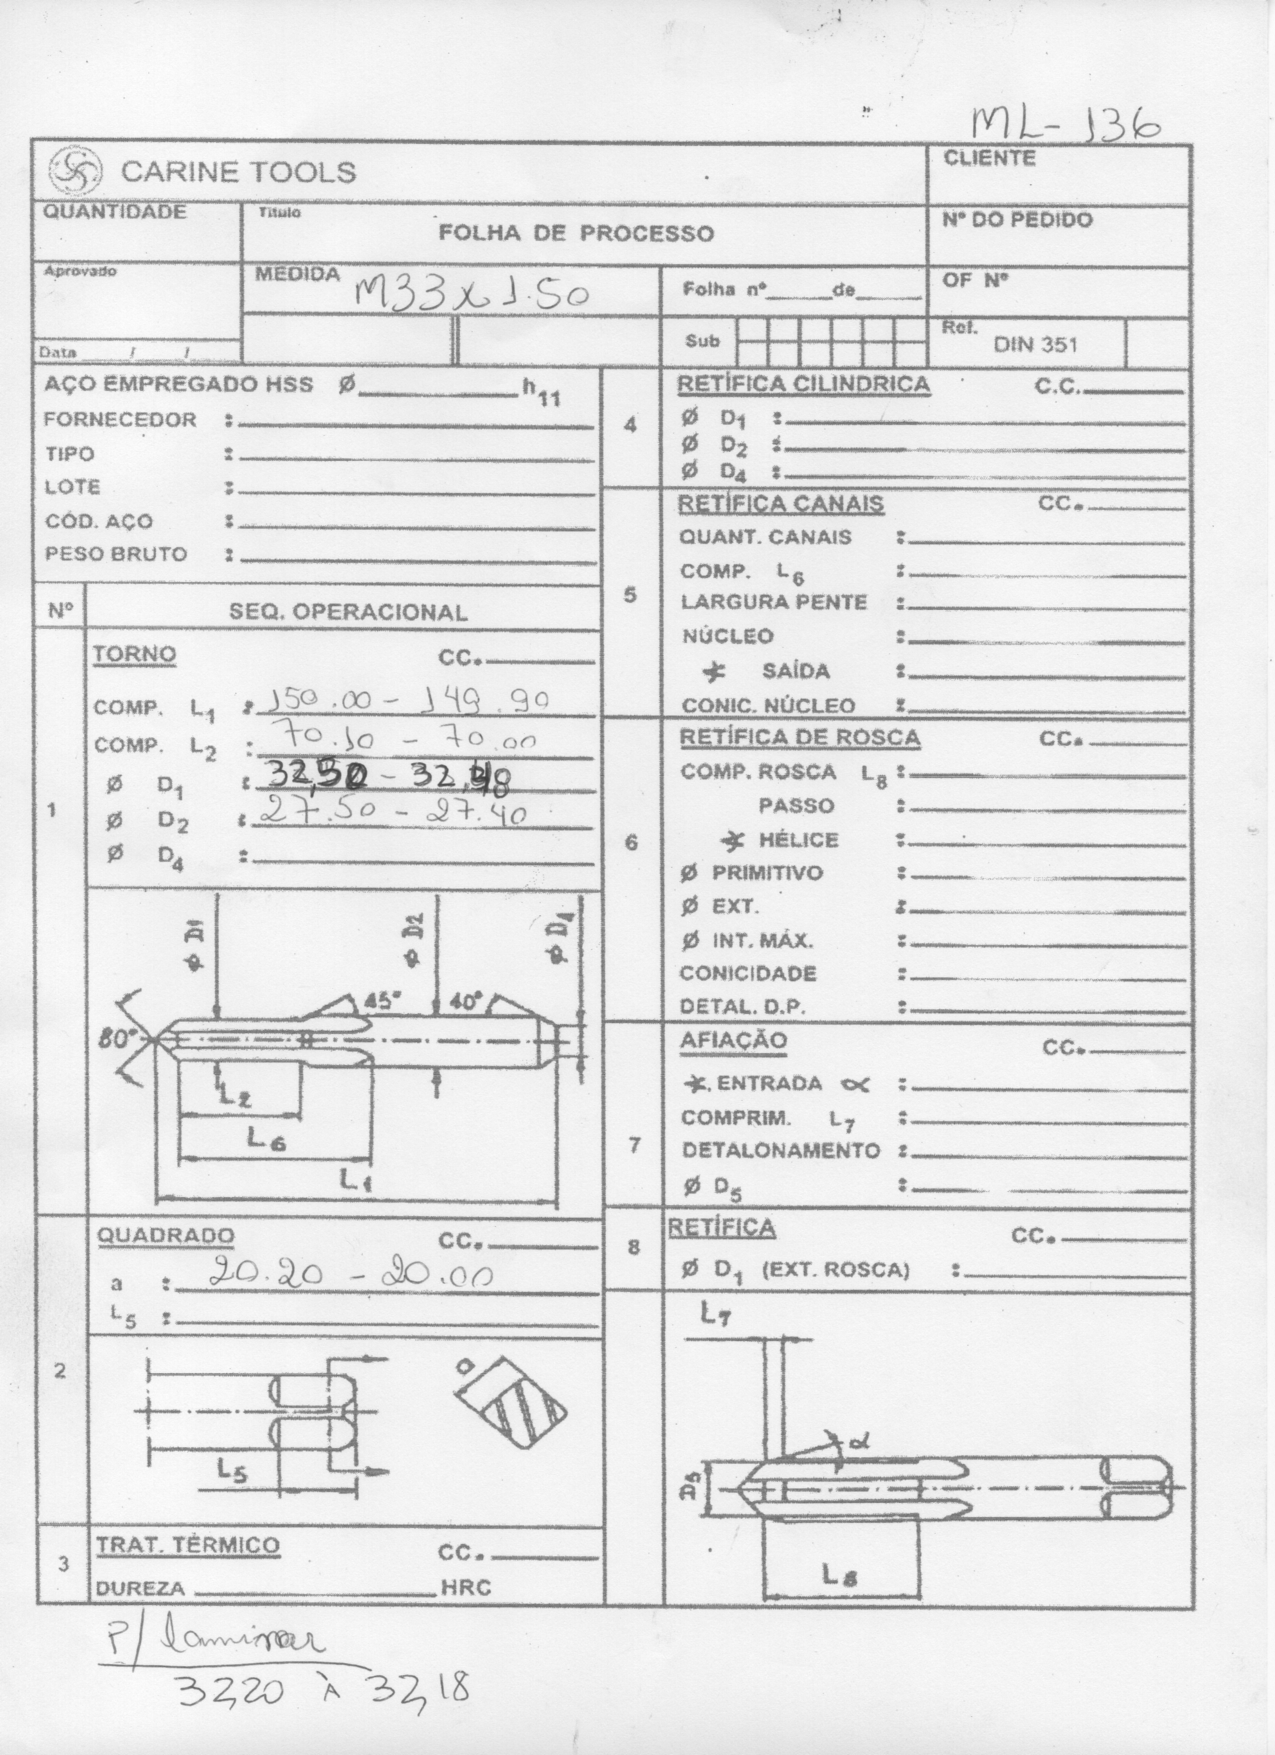 ML-136
CARINE TOOLS
CLIENTE
QUANTIDADE
Título
FOLHA DE PROCESSO
Nº DO PEDIDO
Aprovado
MEDIDA M33x1.50
Folha nº_____de_____
OF Nº
Data / /
Sub
Ref. DIN 351
AÇO EMPREGADO HSS Ø________ h11
FORNECEDOR :
TIPO :
LOTE :
CÓD. AÇO :
PESO BRUTO :
Nº SEQ. OPERACIONAL
1
TORNO CC.
COMP. L1 : 150.00 - 149.90
COMP. L2 : 70.10 - 70.00
Ø D1 : 32,50 - 32,48
Ø D2 : 27.50 - 27.40
Ø D4 :
Ø D1
Ø D2
Ø D4
45° 40°
80°
L2
L6
L1
2
QUADRADO CC.
a : 20.20 - 20.00
L5 :
a
L5
3
TRAT. TÉRMICO CC.
DUREZA ________ HRC
4
RETÍFICA CILINDRICA C.C.
Ø D1 :
Ø D2 :
Ø D4 :
5
RETÍFICA CANAIS CC.
QUANT. CANAIS :
COMP. L6 :
LARGURA PENTE :
NÚCLEO :
SAÍDA :
CONIC. NÚCLEO :
6
RETÍFICA DE ROSCA CC.
COMP. ROSCA L8 :
PASSO :
HÉLICE :
Ø PRIMITIVO :
Ø EXT. :
Ø INT. MÁX. :
CONICIDADE :
DETAL. D.P. :
7
AFIAÇÃO CC.
ENTRADA α :
COMPRIM. L7 :
DETALONAMENTO :
Ø D5 :
8
RETÍFICA CC.
Ø D1 (EXT. ROSCA) :
L7
α
D5
L8
P/ laminar
32,20 À 32,18